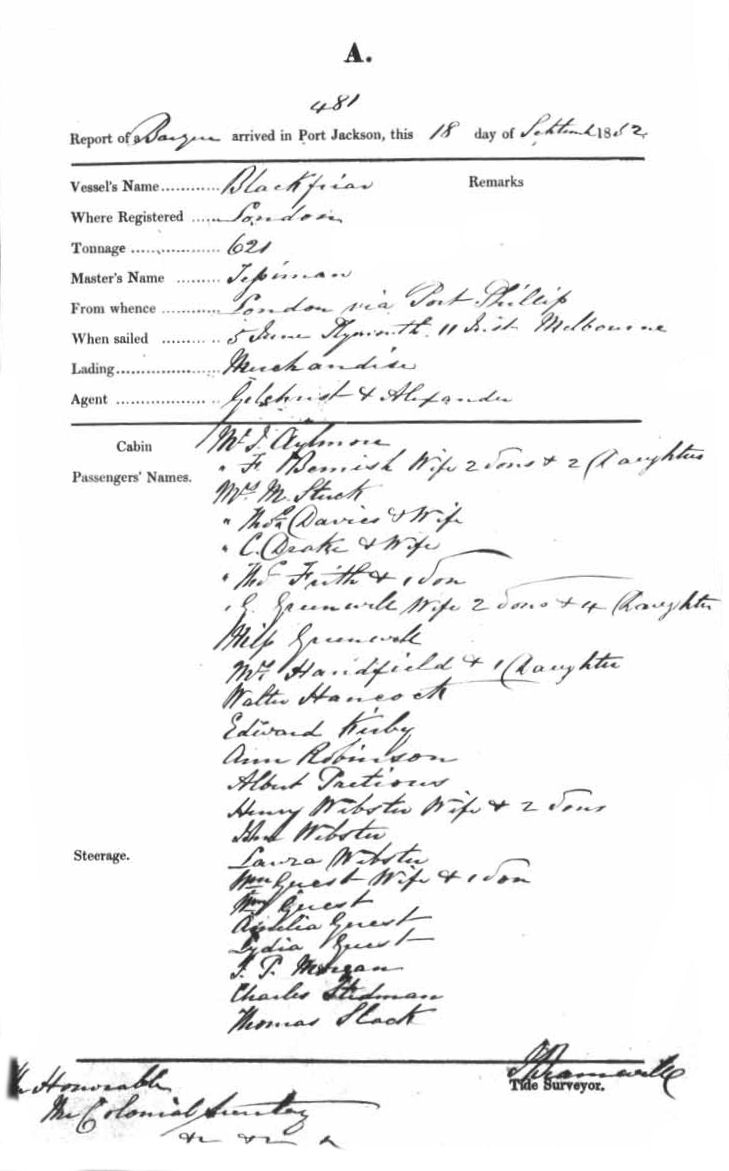 A.
481
Report of a Barque arrived in Port Jackson, this 18 day of Septemb 1852.
Vessel's Name............ Blackfriar Remarks
Where Registered ...... London
Tonnage .................. 621
Master's Name .........
From whence ............ London via Port Phillip
When sailed ........... 5 June Plymouth. 11 Inst Melbourne
Lading..................... Merchandise
Agent .................... Gilchrist & Alexander
Cabin Mr J. Aylmore
Passengers' Names. " F. Wife 2 Sons & 2 Daughters
Mrs M. Stuck
" Thos Davies & Wife
" C. Drake & Wife
" Thos Frith & 1 Son
" G. Greenwell Wife 2 Sons & 4 Daughters
Greenwell
Mrs Handfield & 1 Daughter
Walter Hancock
Edward Kirby
Ann Robinson
Albert Pretious
Henry Webster Wife & 2 Sons
Webster
Steerage. Laura Webster
Wm Guest Wife & 1 Son
Wm Guest
Amelia Guest
Lydia Guest
J. P. Morgan
Charles Stedman
Thomas Slack
Tide Surveyor.
The Honorable
The Colonial Secretary
&c &c &c